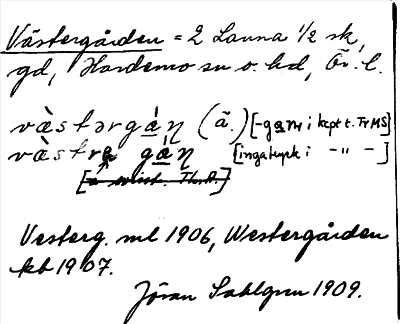 Västergården = 2 Lanna 1/2 sk,
gd, Hardemo sn o. hd, Ör. l.
væ̀stərgá̱ɳ (ã.) [-ga̱rɳ i kept t. Tr MS]
væ̀stra̱ gá̱ɳ [inga tryck i -"- -]
Vesterg. ml 1906, Westergården
kb 1907.
Jöran Sahlgren 1909.